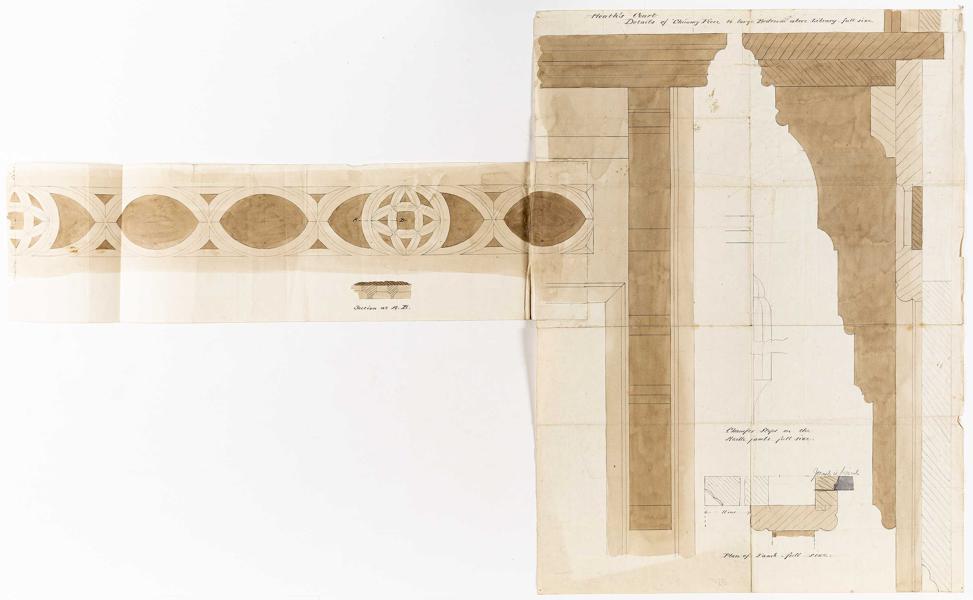 Heath's Court
Details of "Chimney Piece to large Bedroom" above Library. full size
A
B
Section at A.B.
Chamfer Stops on the
Marble jambs full size.
Plan of Jamb. full size.